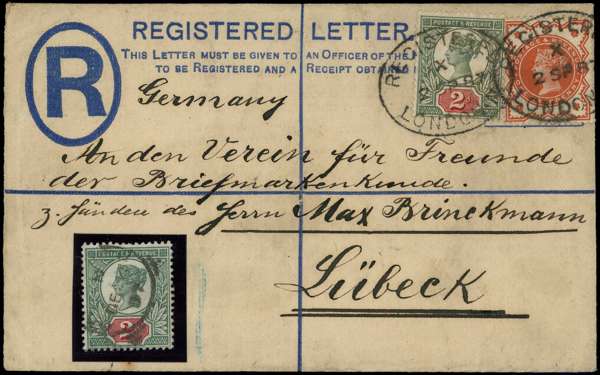 REGISTERED LETTER.
THIS LETTER MUST BE GIVEN TO AN OFFICER OF THE
TO BE REGISTERED AND A RECEIPT OBTAINED
R
POSTAGE & REVENUE
2d
REGISTERED
X
2 SP 87
LONDON
Germany
An den Verein für Freunde
der Briefmarkenkunde.
z. Händen des Herrn Max Brinckmann
Lübeck
POSTAGE & REVENUE
2d